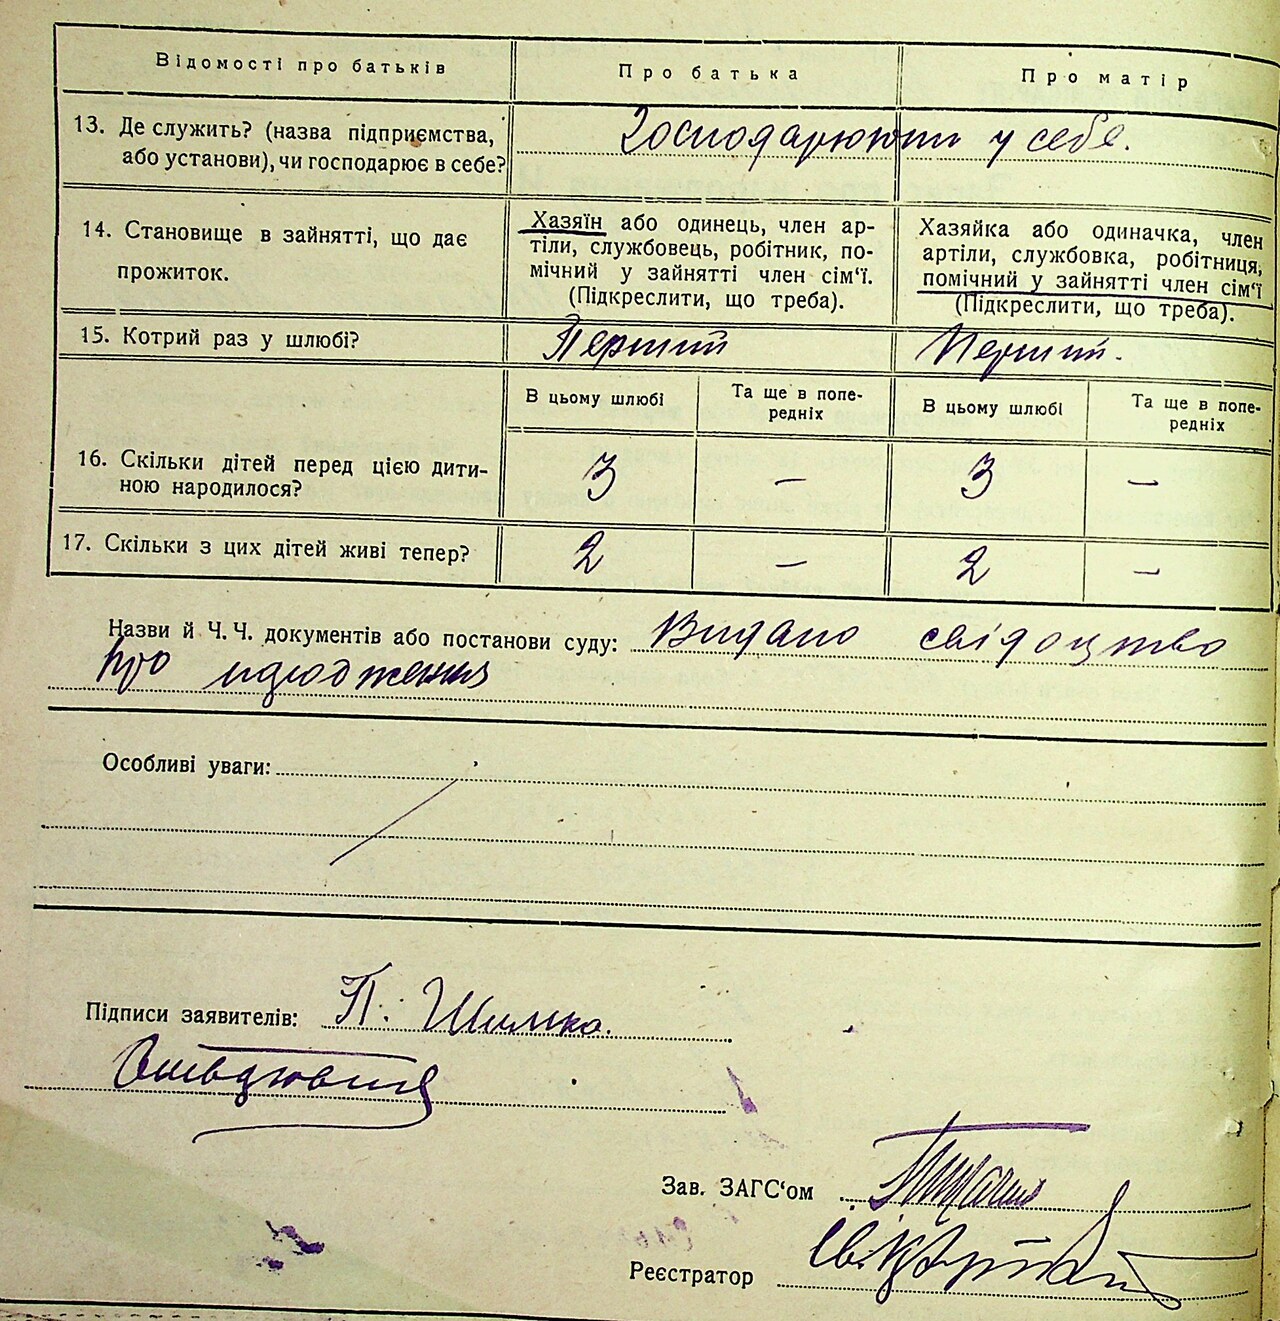 Відомості про батьків Про батька Про матір
13. Де служить? (назва підприємства,
або установи), чи господарює в себе?
Господарюють у себе.
14. Становище в зайнятті, що дає
прожиток.
Хазяїн або одинець, член ар-
тіли, службовець, робітник, по-
мічний у зайнятті член сім‘ї.
(Підкреслити, що треба).
Хазяйка або одиначка, член
артіли, службовка, робітниця,
помічний у зайнятті член сім‘ї
(Підкреслити, що треба).
15. Котрий раз у шлюбі? Перший Перший.
В цьому шлюбі
Та ще в попе-
редніх
В цьому шлюбі
Та ще в попе-
редніх
16. Скільки дітей перед цією дити-
ною народилося?
3 — 3 —
17. Скільки з цих дітей живі тепер? 2 — 2 —
Назви й Ч. Ч. документів або постанови суду: Видано свідоцтво
про народження
Особливі уваги:
Підписи заявителів: П. Шимко.
Зав. ЗАГС‘ом
Реєстратор